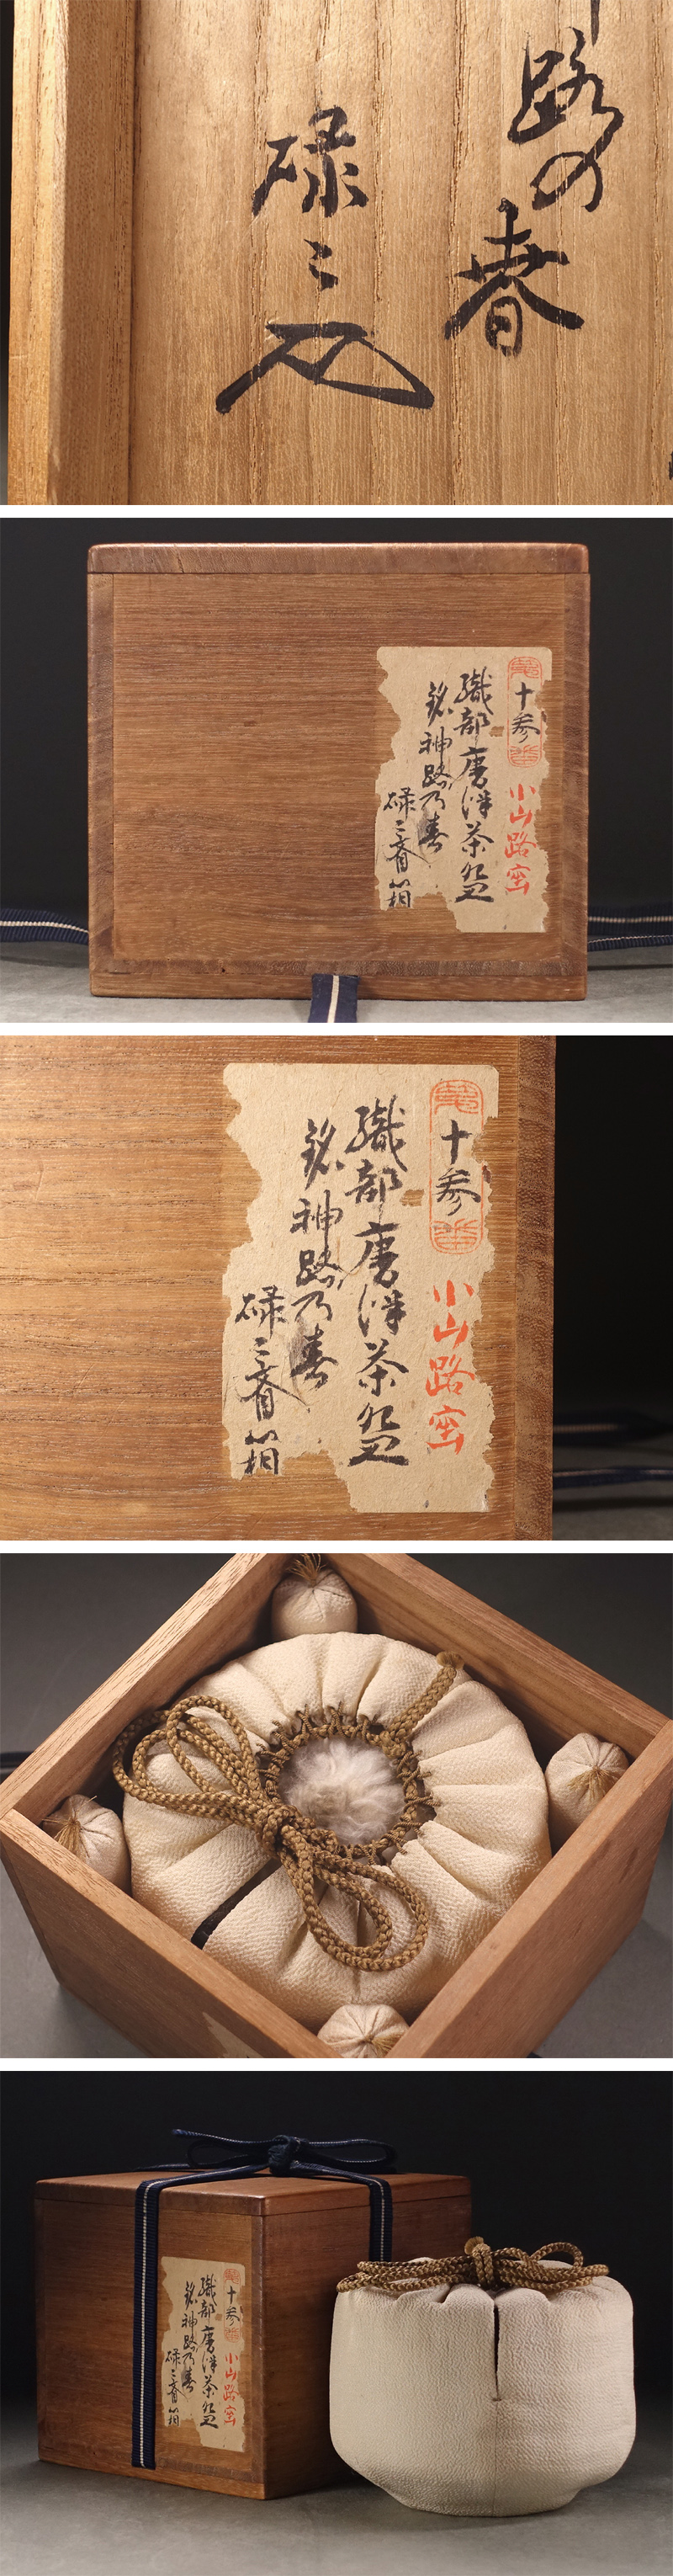 路の春
碌々
十参
小山路窯
織部唐津茶盌
銘神路乃春
碌々斎箱
十参
小山路窯
織部唐津茶盌
銘神路乃春
碌々斎箱
十参
小山路窯
織部唐津茶盌
銘神路乃春
碌々斎箱